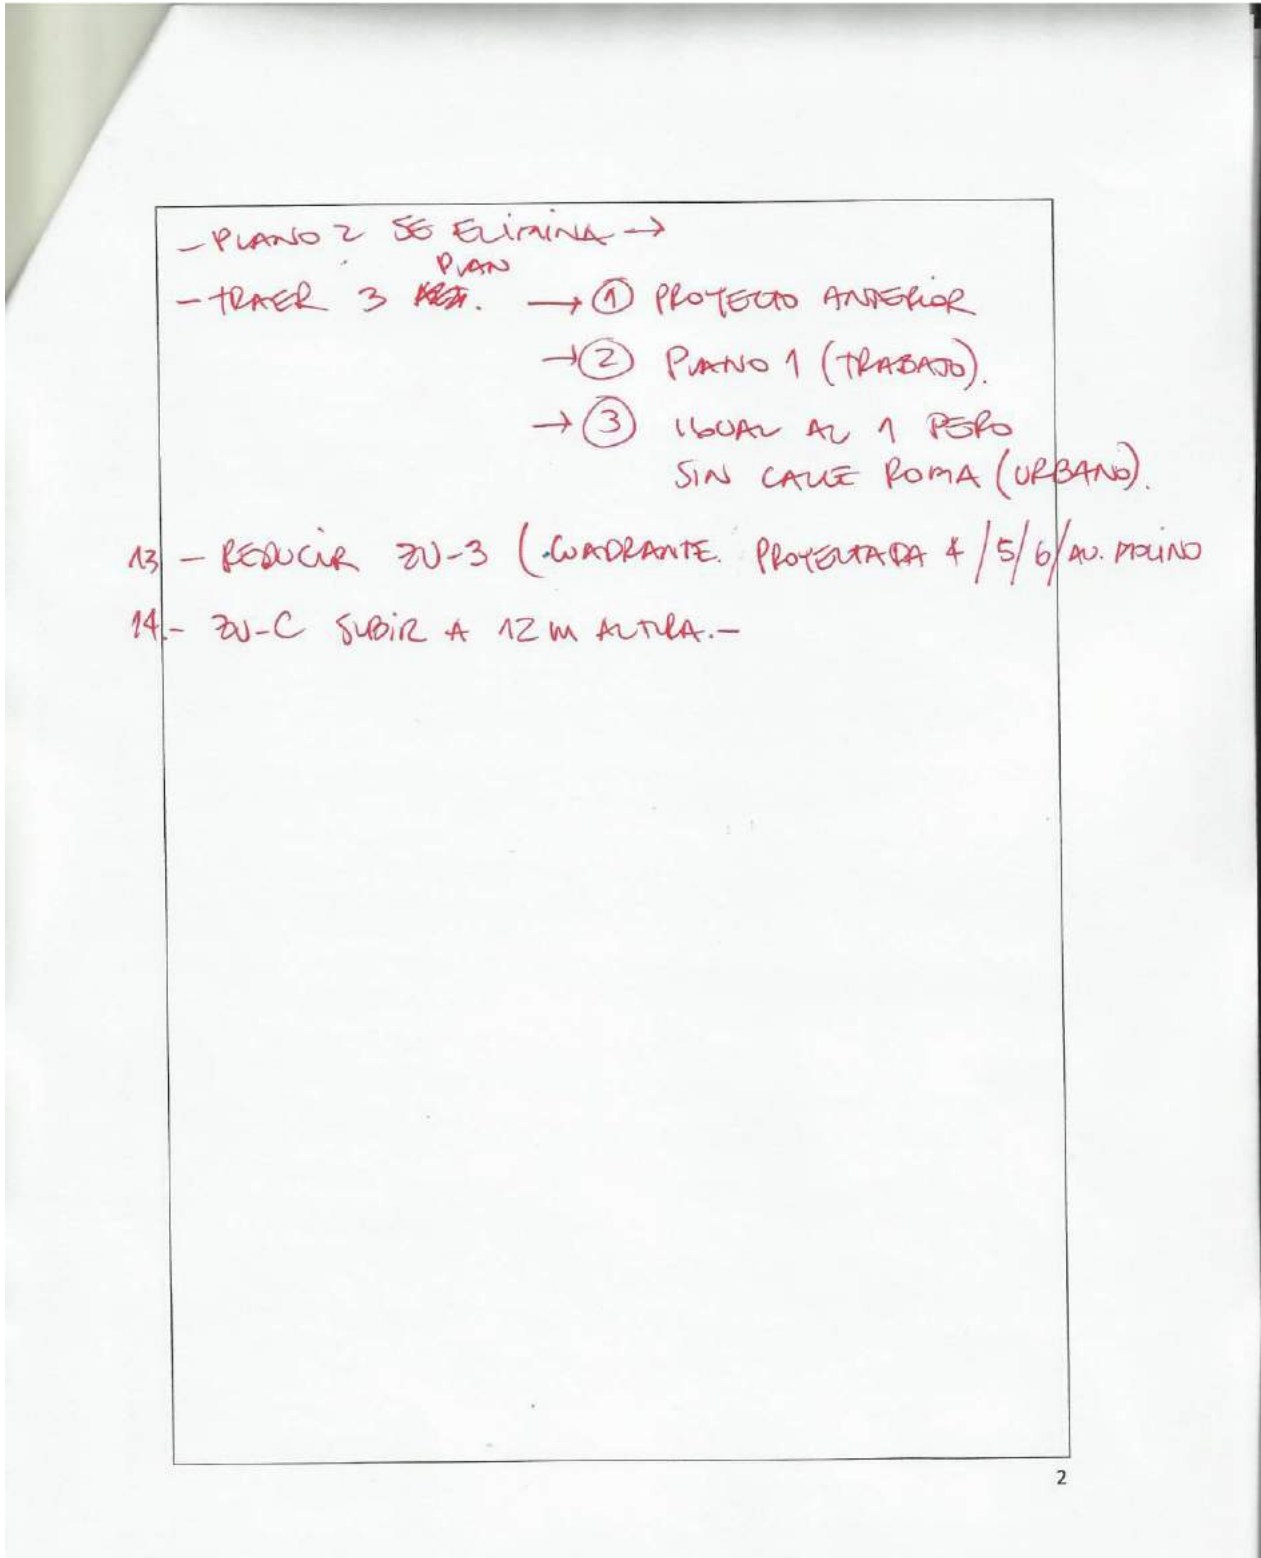 - PLANO 2 SE ELIMINA →
PLAN
- TRAER 3 . → ① PROYECTO ANTERIOR
→ ② PLANO 1 (TRABAJO).
→ ③ IGUAL AL 1 PERO
SIN CALLE ROMA (URBANO).
13 - REDUCIR ZU-3 (CUADRANTE. PROYECTADA 4/5/6/AV. MOLINO
14.- ZU-C SUBIR A 12 M ALTURA.-
2